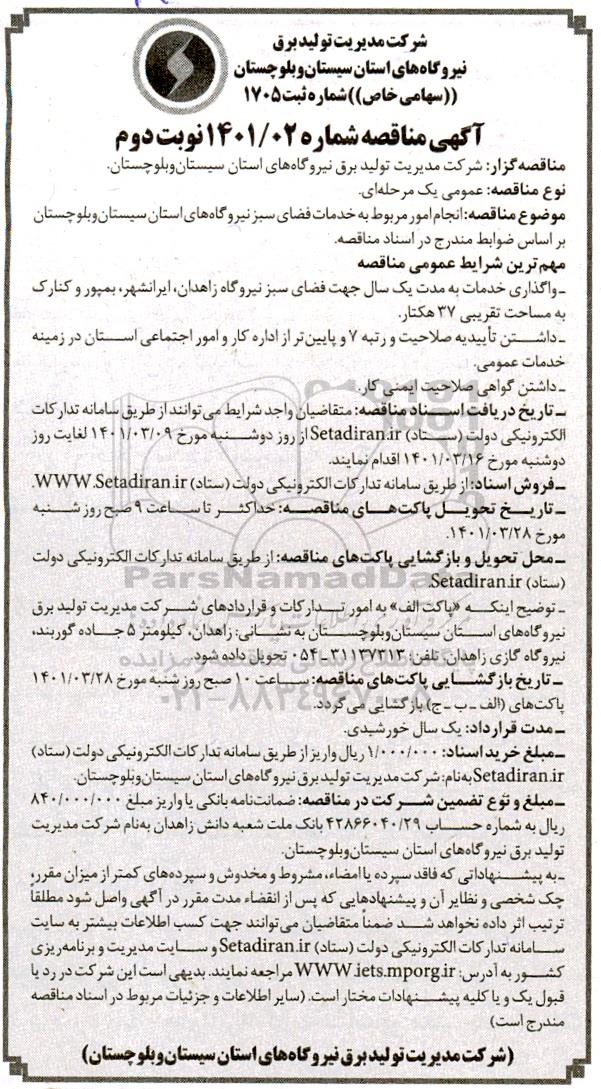 شرکت مدیریت تولید برق
نیروگاه‌های استان سیستان و بلوچستان
((سهامی خاص)) شماره ثبت ۱۷۰۵
آگهی مناقصه شماره ۱۴۰۱/۰۲ نوبت دوم
مناقصه‌گزار: شرکت مدیریت تولید برق نیروگاه‌های استان سیستان‌وبلوچستان.
نوع مناقصه: عمومی یک مرحله‌ای.
موضوع مناقصه: انجام امور مربوط به خدمات فضای سبز نیروگاه‌های استان سیستان‌وبلوچستان
بر اساس ضوابط مندرج در اسناد مناقصه.
مهم‌ترین شرایط عمومی مناقصه
ـ واگذاری خدمات به مدت یک سال جهت فضای سبز نیروگاه زاهدان، ایرانشهر، بمپور و کنارک
به مساحت تقریبی ۳۷ هکتار.
ـ داشتن تأییدیه صلاحیت و رتبه ۷ و پایین‌تر از اداره کار و امور اجتماعی استان در زمینه
خدمات عمومی.
ـ داشتن گواهی صلاحیت ایمنی کار.
ـ تاریخ دریافت اسناد مناقصه: متقاضیان واجد شرایط می‌توانند از طریق سامانه تدارکات
الکترونیکی دولت (ستاد) Setadiran.ir از روز دوشنبه مورخ ۱۴۰۱/۰۳/۰۹ لغایت روز
دوشنبه مورخ ۱۴۰۱/۰۳/۱۶ اقدام نمایند.
ـ فروش اسناد: از طریق سامانه تدارکات الکترونیکی دولت (ستاد) WWW.Setadiran.ir.
ـ تاریخ تحویل پاکت‌های مناقصه: حداکثر تا ساعت ۹ صبح روز شنبه
مورخ ۱۴۰۱/۰۳/۲۸.
ـ محل تحویل و بازگشایی پاکت‌های مناقصه: از طریق سامانه تدارکات الکترونیکی دولت
(ستاد) Setadiran.ir.
ـ توضیح اینکه «پاکت الف» به امور تدارکات و قراردادهای شرکت مدیریت تولید برق
نیروگاه‌های استان سیستان‌وبلوچستان به نشانی: زاهدان، کیلومتر ۵ جاده گوربند،
نیروگاه گازی زاهدان تلفن: ۳۱۱۳۷۳۱۳-۰۵۴ تحویل داده شود.
ـ تاریخ بازگشایی پاکت‌های مناقصه: ساعت ۱۰ صبح روز شنبه مورخ ۱۴۰۱/۰۳/۲۸
پاکت‌های (الف - ب - ج) بازگشایی می‌گردد.
ـ مدت قرارداد: یک سال خورشیدی.
ـ مبلغ خرید اسناد: ۱/۰۰۰/۰۰۰ ریال واریز از طریق سامانه تدارکات الکترونیکی دولت (ستاد)
Setadiran.ir به‌نام: شرکت مدیریت تولید برق نیروگاه‌های استان سیستان‌وبلوچستان.
ـ مبلغ و نوع تضمین شرکت در مناقصه: ضمانت‌نامه بانکی یا واریز مبلغ ۸۴۰/۰۰۰/۰۰۰
ریال به شماره حساب ۴۲۸۶۶۰۴۰/۲۹ بانک ملت شعبه دانش زاهدان به‌نام شرکت مدیریت
تولید برق نیروگاه‌های استان سیستان‌وبلوچستان.
ـ به پیشنهاداتی که فاقد سپرده یا امضاء، مشروط و مخدوش و سپرده‌های کمتر از میزان مقرر،
چک شخصی و نظایر آن و پیشنهادهایی که پس از انقضاء مدت مقرر در آگهی واصل شود مطلقاً
ترتیب اثر داده نخواهد شد ضمناً متقاضیان می‌توانند جهت کسب اطلاعات بیشتر به سایت
سامانه تدارکات الکترونیکی دولت (ستاد) Setadiran.ir و سایت مدیریت و برنامه‌ریزی
کشور به آدرس: WWW.iets.mporg.ir مراجعه نمایند. بدیهی است این شرکت در رد یا
قبول یک و یا کلیه پیشنهادات مختار است. (سایر اطلاعات و جزئیات مربوط در اسناد مناقصه
مندرج است)
(شرکت مدیریت تولید برق نیروگاه‌های استان سیستان و بلوچستان)
ParsNamadData
۰۲۱-۸۸۳۴۹۶۷۰-۵